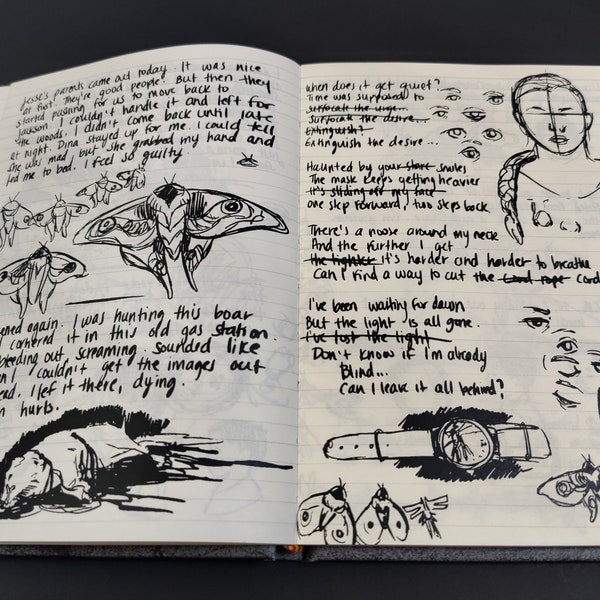 Jesse's parents came out today. It was nice
at first. They're good people. But then they
started pushing for us to move back to
Jackson. I couldn't handle it and left for
the woods. I didn't come back until late
at night. Dina stayed up for me. I could tell
she was mad, but she grabbed my hand and
led me to bed. I feel so guilty.
ened again. I was hunting this boar
cornered it in this old gas station.
bleeding out, screaming. Sounded like
I couldn't get the images out
ead. I left it there, dying.
hurts.
when does it get quiet?
Time was supposed to
suffocate the urge...
Suffocate the desire...
Extinguish?
Extinguish the desire...
Haunted by your stare smiles
The mask keeps getting heavier
It's sliding off my face
one step forward, two steps back.
There's a noose around my neck
And the further I get
the tighter it's harder and harder to breathe
Can I find a way to cut the cord rope cord
I've been waiting for dawn
But the light is all gone.
I've lost the light
Don't know if I'm already
Blind...
Can I leave it all behind?